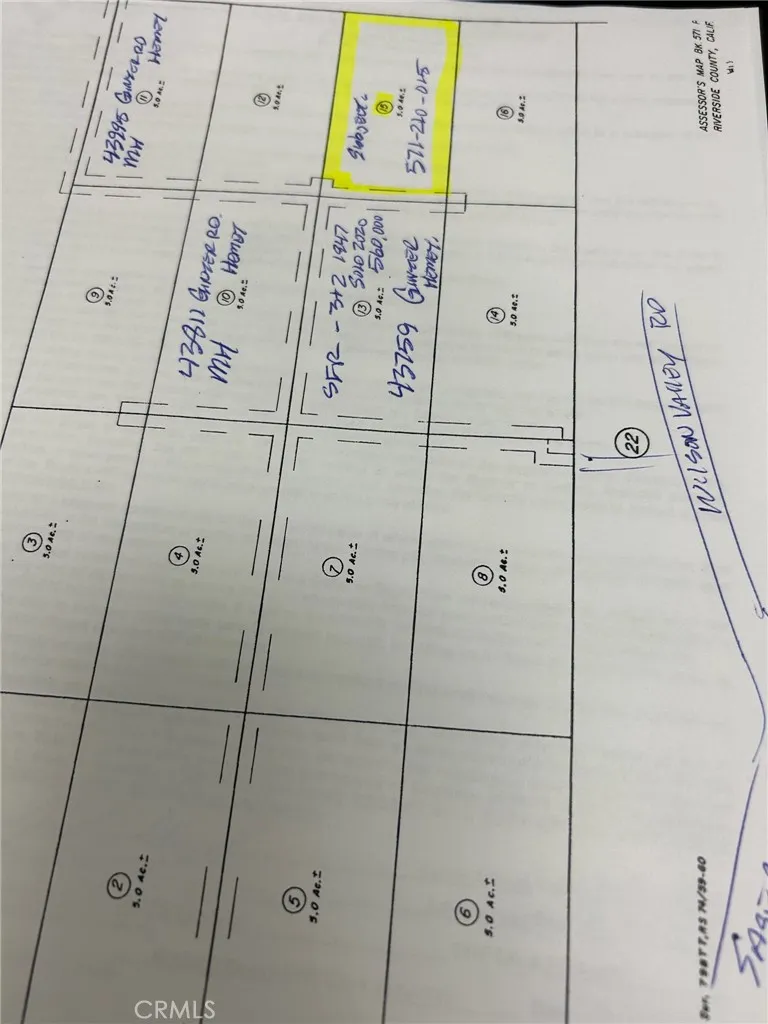 ASSESSOR'S MAP BK 571 P.
RIVERSIDE COUNTY, CALIF.
43995 GINGER RD
HEMET
MH
11
5.0 Ac.±
12
5.0 Ac.±
Subject.
15
5.0 Ac.±
571-210-015
16
5.0 Ac.±
9
5.0 Ac.±
43811 GINGER RD.
HEMET
MH
10
5.0 Ac.±
SFR - 3+2 1947
SOLD 2020
560,000
13
5.0 Ac.±
43759 GINGER
HEMET.
14
5.0 Ac.±
WILSON VALLEY RD
22
3
5.0 Ac.±
4
5.0 Ac.±
7
5.0 Ac.±
8
5.0 Ac.±
2
5.0 Ac.±
5
5.0 Ac.±
6
5.0 Ac.±
CRMLS